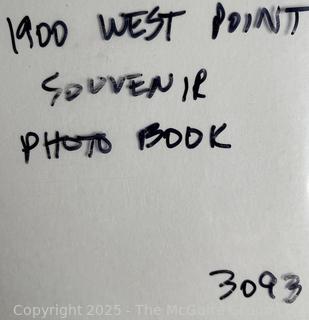 1900 WEST POINT
SOUVENIR
PHOTO BOOK
3093
Copyright 2025 - The McGuire Group